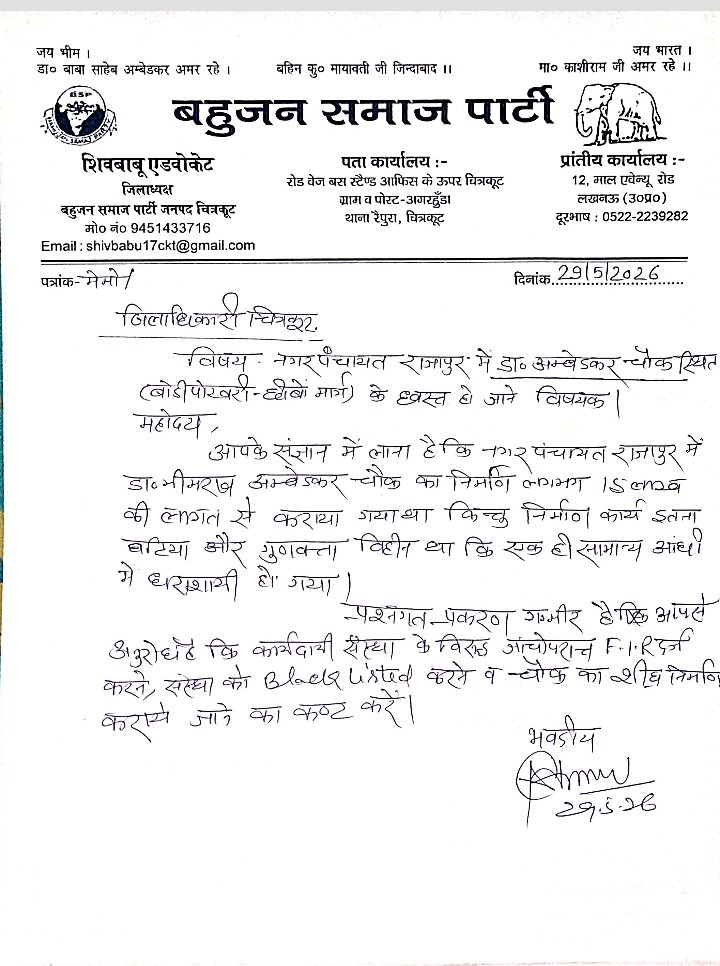 जय भीम ।
जय भारत ।
डा० बाबा साहेब अम्बेडकर अमर रहे ।
बहिन कु० मायावती जी जिन्दाबाद ।।
मा० काशीराम जी अमर रहे ।।
BSP
बहुजन समाज पार्टी
शिवबाबू एडवोकेट
जिलाध्यक्ष
बहुजन समाज पार्टी जनपद चित्रकूट
मो० नं० 9451433716
Email : shivbabu17ckt@gmail.com
पता कार्यालय :-
रोड वेज बस स्टैण्ड आफिस के ऊपर चित्रकूट
ग्राम व पोस्ट-अगरहुँडा
थाना रैपुरा, चित्रकूट
प्रांतीय कार्यालय :-
12, माल एवेन्यू रोड
लखनऊ (उ०प्र०)
दूरभाष : 0522-2239282
पत्रांक- मेमो/
दिनांक 29/5/2026
जिलाधिकारी चित्रकूट
विषय - नगर पंचायत राजापुर में डा० अम्बेडकर चौक स्थित
(बोडीपोखरी-छीबों मार्ग) के ध्वस्त हो जाने विषयक।
महोदय,
आपके संज्ञान में लाना है कि नगर पंचायत राजापुर में
डा० भीमराव अम्बेडकर चौक का निर्माण लगभग 15 लाख
की लागत से कराया गया था किन्तु निर्माण कार्य इतना
घटिया और गुणवत्ता विहीन था कि एक ही सामान्य आंधी
में धराशायी हो गया।
प्रश्नगत प्रकरण गम्भीर है कि आपसे
अनुरोध है कि कार्यदायी संस्था के विरुद्ध जांचोपरान्त F.I.R दर्ज
करने, संस्था को Black Listed करने व चौक का शीघ्र निर्माण
कराये जाने का कष्ट करें।
भवदीय
29.5.26